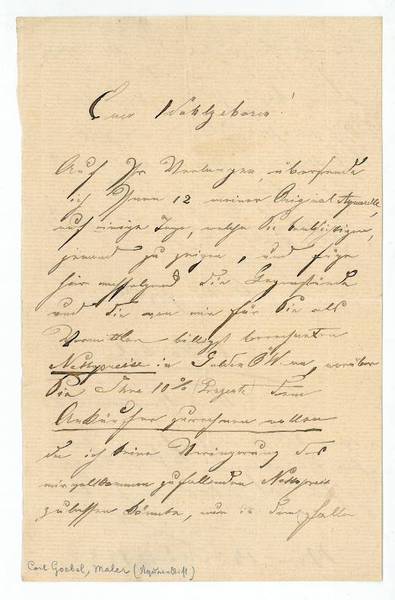 Euer Wohlgeboren!
Auf Ihr Verlangen, übersende
ich Ihnen 12 meiner Original Aquarelle,
auf einige Tage, welche Sie beabsichtigen,
jemand zu zeigen, und füge
hier nachfolgend die Gegenstände
und die von mir für Sie als
billigst berechneten
Nettopreise in Gulden Ö W an, worüber
Sie Ihre 10% (Prozente) dem
Ankäufer zurechnen wollen
da ich keine Verringerung des
mir zufallenden Nettopreis
zulassen könnte, nun in
Carl Goebel, Maler (Aquarellist.)